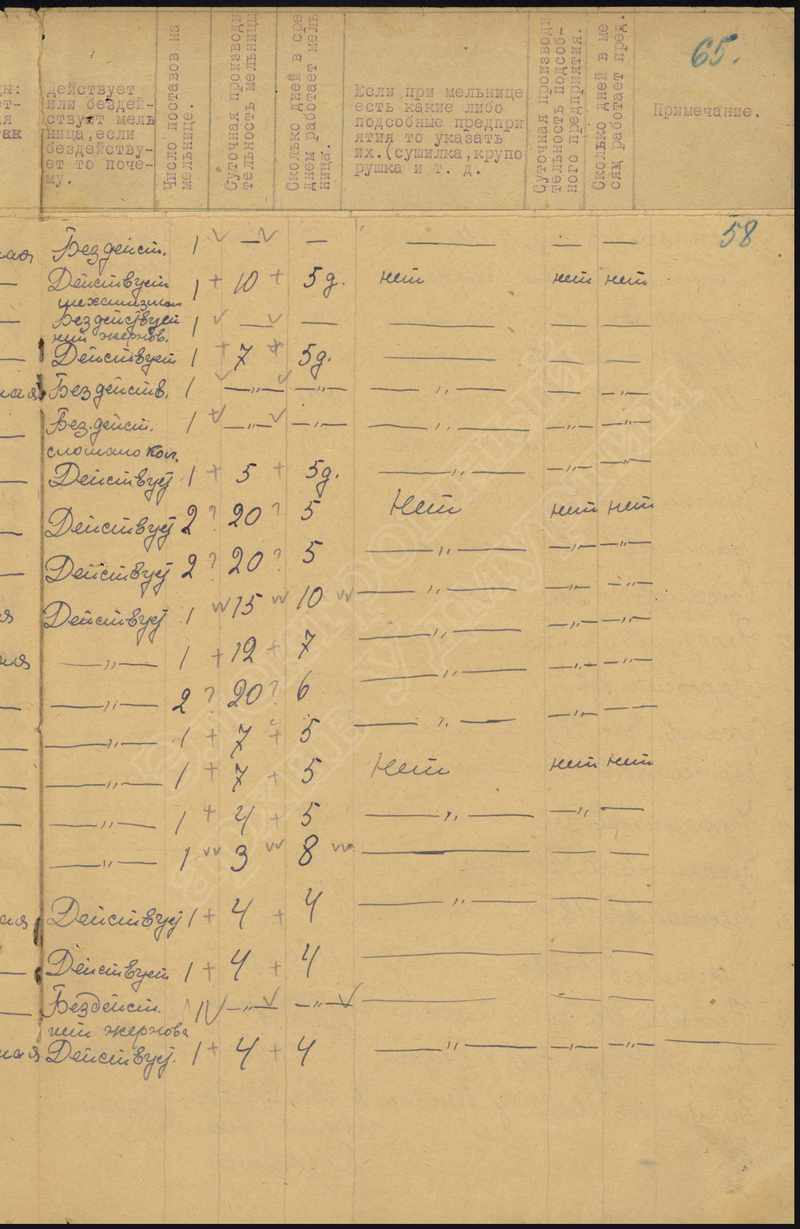 65.
действует
или бездей-
ствует мель
ница, если
бездейству-
ет то поче-
му.
Число поставов на
мельнице.
Суточная производи
тельность мельницы
Сколько дней в сре
днем работает мель
ница.
Если при мельнице
есть какие либо
подсобные предпри
ятия то указать
их. (сушилка, крупо
рушка и т. д.
Суточная производи
тельность подсоб-
ного предприятия.
Сколько дней в ме
сяц работает пред.
Примечание.
58
Бездейст. 1 V — V — — — —
Действует 1 + 10 + 5 д. нет нет нет
механизмом
Бездействует 1 V — V — — — —
нет жернов.
Действует 1 + 7 + 5д. — — —
Бездейств. 1 V —„— V —„— —„— — —„—
Без.дейст. 1 V —„— V —„— —„— —„— —„—
сломано кол.
Действуе 1 + 5 + 5д. —„— —„— —„—
Действуе 2 ? 20 ? 5 Нет нет нет
Действуе 2 ? 20 ? 5 —„— —„— —„—
Действуе 1 VV 15 VV 10 VV —„— —„— —„—
—„— 1 + 12 + 7 —„— —„— —„—
—„— 2 ? 20 ? 6 —„— —„— —„—
—„— 1 + 7 + 5 —„— —„— —
—„— 1 + 7 + 5 Нет нет нет
—„— 1 + 4 + 5 —„— —„— —
—„— 1 VV 3 VV 8 VV — — —
Действуе 1 + 4 + 4 —„— — —
Действует 1 + 4 + 4 — — —
Бездейст. 1 V —„— V —„— V — — —
нет жернова
Действуе. 1 + 4 + 4 —„— —„— —„— —